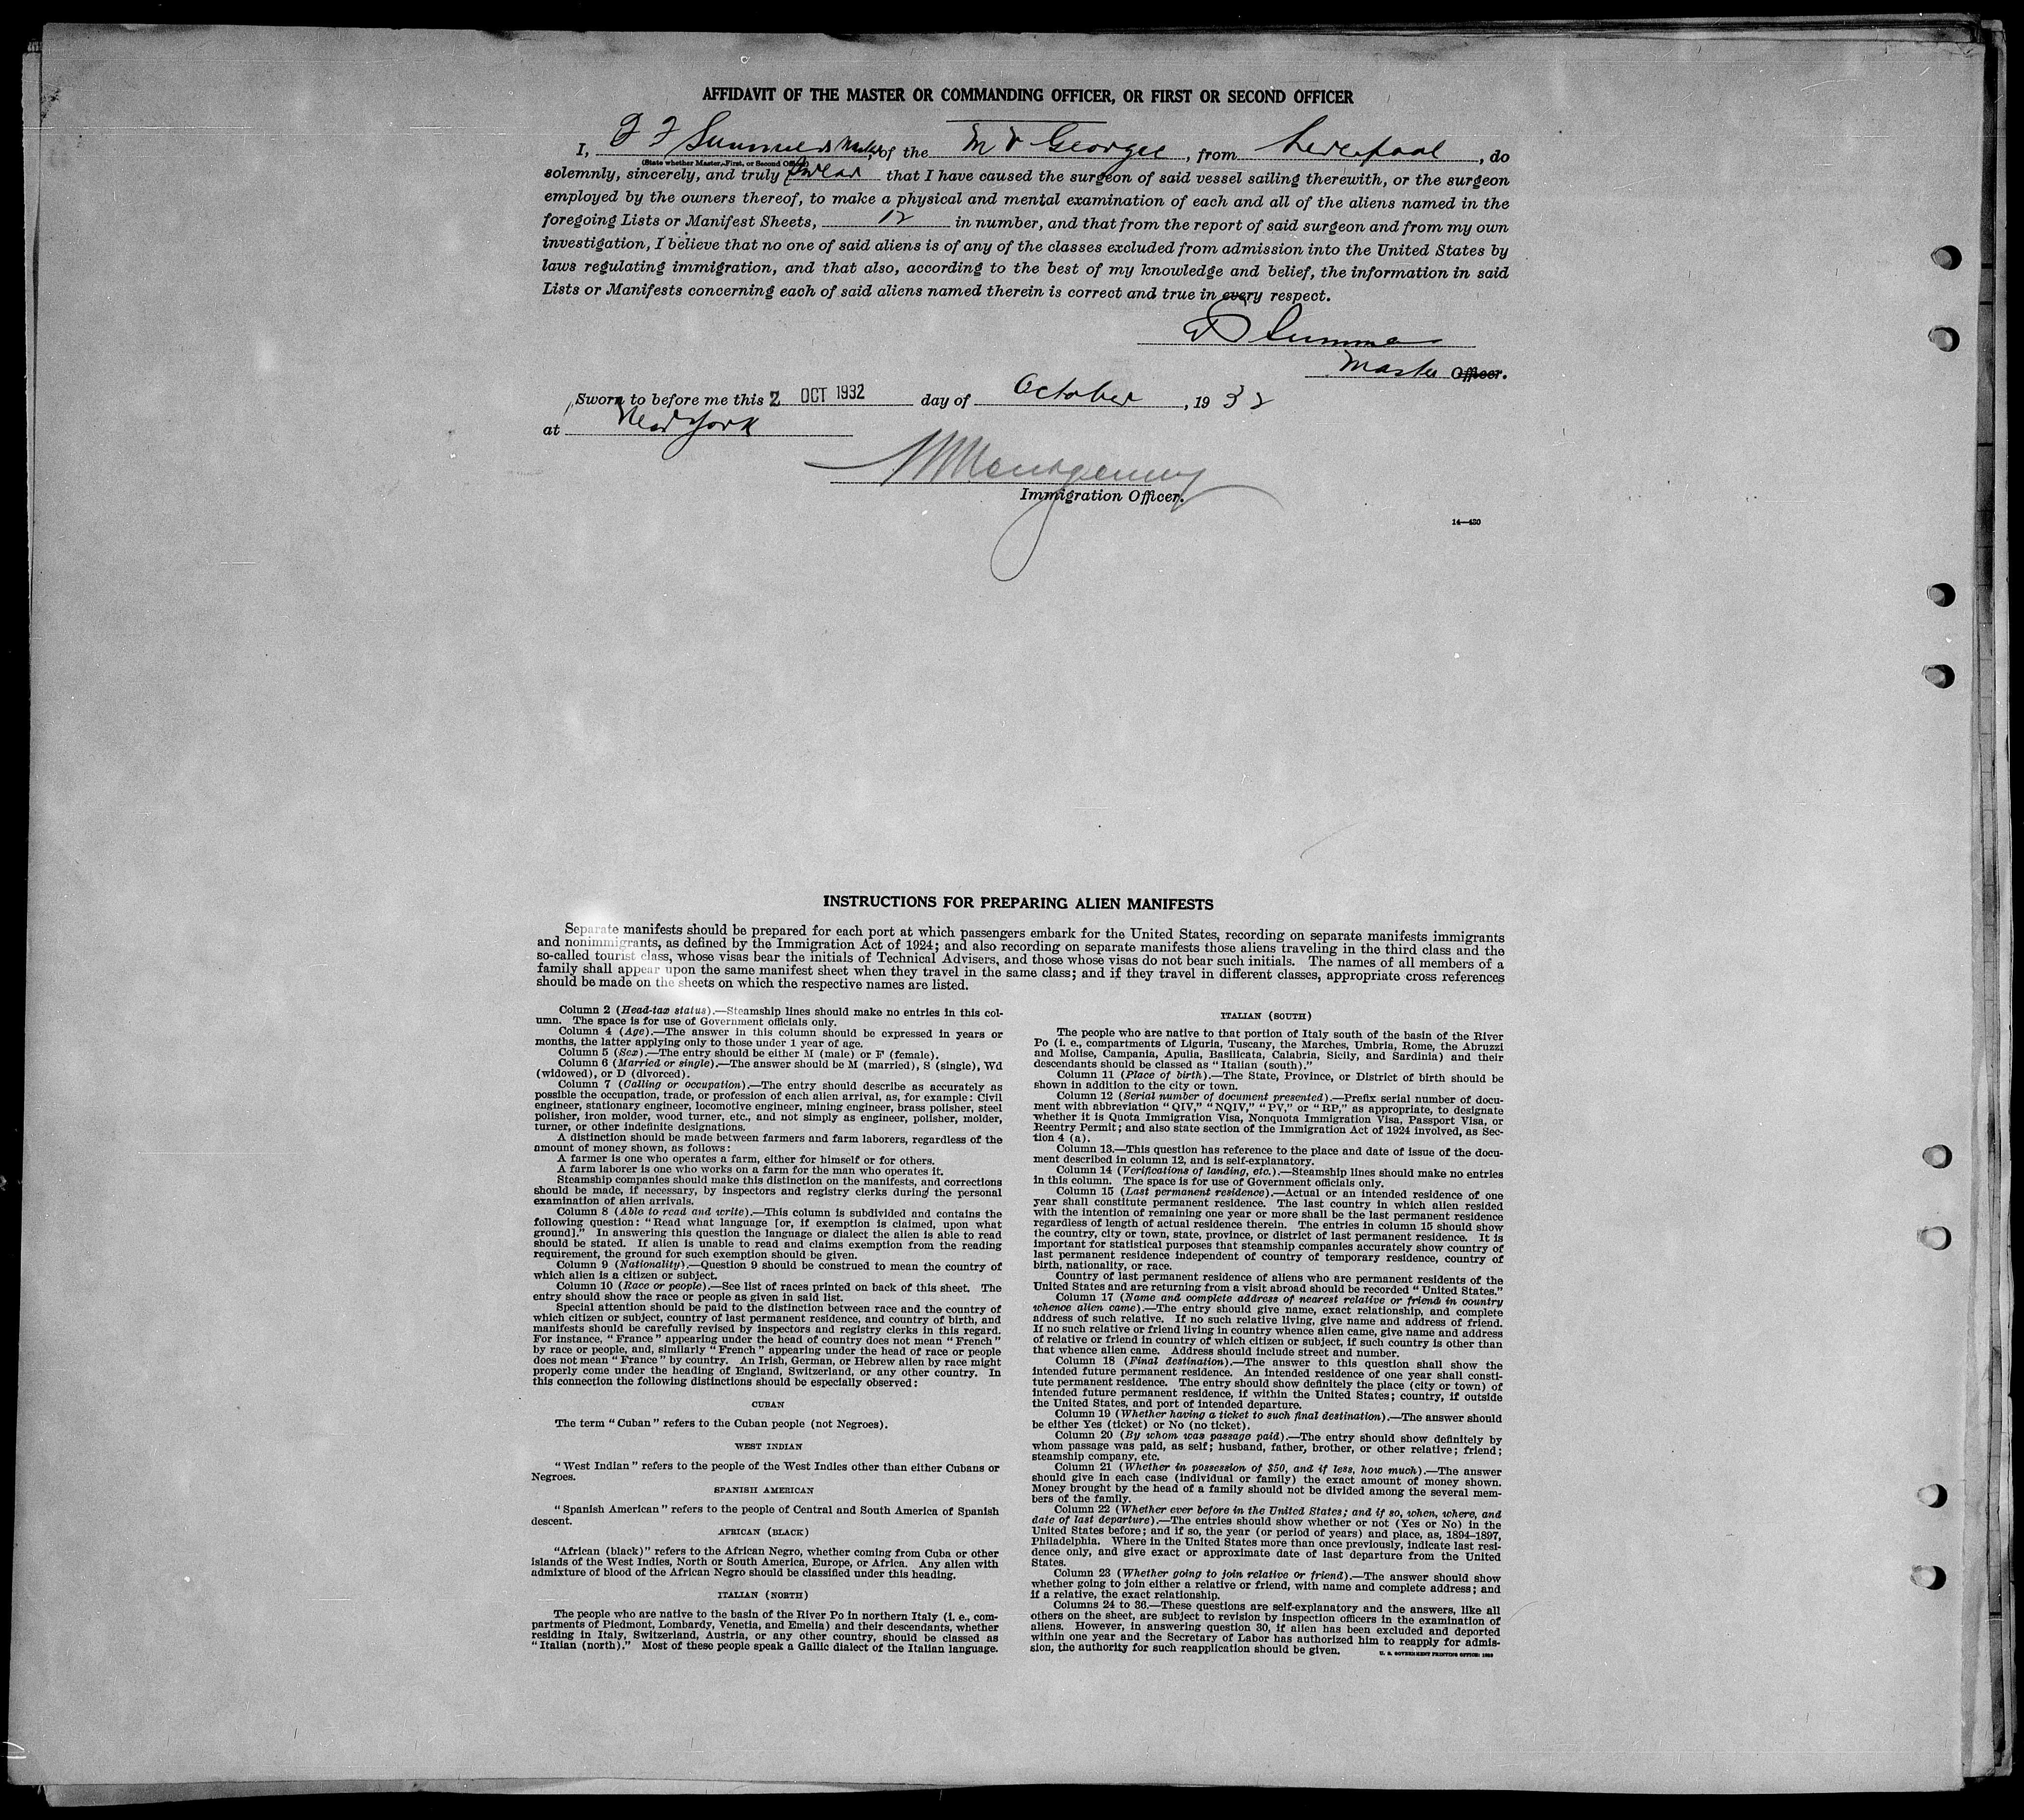 AFFIDAVIT OF THE MASTER OR COMMANDING OFFICER, OR FIRST OR SECOND OFFICER
I, F F Summers Master, of the M V Georgic, from Liverpool, do
(State whether Master, First, or Second Officer)
solemnly, sincerely, and truly swear that I have caused the surgeon of said vessel sailing therewith, or the surgeon
employed by the owners thereof, to make a physical and mental examination of each and all of the aliens named in the
foregoing Lists or Manifest Sheets, 12 in number, and that from the report of said surgeon and from my own
investigation, I believe that no one of said aliens is of any of the classes excluded from admission into the United States by
laws regulating immigration, and that also, according to the best of my knowledge and belief, the information in said
Lists or Manifests concerning each of said aliens named therein is correct and true in every respect.
Summers
Master Officer.
Sworn to before me this 2 OCT 1932 day of October, 1932
at New York
Montgomery
Immigration Officer.
14—430
INSTRUCTIONS FOR PREPARING ALIEN MANIFESTS
Separate manifests should be prepared for each port at which passengers embark for the United States, recording on separate manifests immigrants
and nonimmigrants, as defined by the Immigration Act of 1924; and also recording on separate manifests those aliens traveling in the third class and the
so-called tourist class, whose visas bear the initials of Technical Advisers, and those whose visas do not bear such initials. The names of all members of a
family shall appear upon the same manifest sheet when they travel in the same class; and if they travel in different classes, appropriate cross references
should be made on the sheets on which the respective names are listed.
Column 2 (Head-tax status).—Steamship lines should make no entries in this col-
umn. The space is for use of Government officials only.
Column 4 (Age).—The answer in this column should be expressed in years or
months, the latter applying only to those under 1 year of age.
Column 5 (Sex).—The entry should be either M (male) or F (female).
Column 6 (Married or single).—The answer should be M (married), S (single), Wd
(widowed), or D (divorced).
Column 7 (Calling or occupation).—The entry should describe as accurately as
possible the occupation, trade, or profession of each alien arrival, as, for example: Civil
engineer, stationary engineer, locomotive engineer, mining engineer, brass polisher, steel
polisher, iron molder, wood turner, etc., and not simply as engineer, polisher, molder,
turner, or other indefinite designations.
A distinction should be made between farmers and farm laborers, regardless of the
amount of money shown, as follows:
A farmer is one who operates a farm, either for himself or for others.
A farm laborer is one who works on a farm for the man who operates it.
Steamship companies should make this distinction on the manifests, and corrections
should be made, if necessary, by inspectors and registry clerks during the personal
examination of alien arrivals.
Column 8 (Able to read and write).—This column is subdivided and contains the
following question: "Read what language [or, if exemption is claimed, upon what
ground]." In answering this question the language or dialect the alien is able to read
should be stated. If alien is unable to read and claims exemption from the reading
requirement, the ground for such exemption should be given.
Column 9 (Nationality).—Question 9 should be construed to mean the country of
which alien is a citizen or subject.
Column 10 (Race or people).—See list of races printed on back of this sheet. The
entry should show the race or people as given in said list.
Special attention should be paid to the distinction between race and the country of
which citizen or subject, country of last permanent residence, and country of birth, and
manifests should be carefully revised by inspectors and registry clerks in this regard.
For instance, "France" appearing under the head of country does not mean "French"
by race or people, and, similarly "French" appearing under the head of race or people
does not mean "France" by country. An Irish, German, or Hebrew alien by race might
properly come under the heading of England, Switzerland, or any other country. In
this connection the following distinctions should be especially observed:
CUBAN
The term "Cuban" refers to the Cuban people (not Negroes).
WEST INDIAN
"West Indian" refers to the people of the West Indies other than either Cubans or
Negroes.
SPANISH AMERICAN
"Spanish American" refers to the people of Central and South America of Spanish
descent.
AFRICAN (BLACK)
"African (black)" refers to the African Negro, whether coming from Cuba or other
islands of the West Indies, North or South America, Europe, or Africa. Any alien with
admixture of blood of the African Negro should be classified under this heading.
ITALIAN (NORTH)
The people who are native to the basin of the River Po in northern Italy (i. e., com-
partments of Piedmont, Lombardy, Venetia, and Emelia) and their descendants, whether
residing in Italy, Switzerland, Austria, or any other country, should be classed as
"Italian (north)." Most of these people speak a Gallic dialect of the Italian language.
ITALIAN (SOUTH)
The people who are native to that portion of Italy south of the basin of the River
Po (i. e., compartments of Liguria, Tuscany, the Marches, Umbria, Rome, the Abruzzi
and Molise, Campania, Apulia, Basilicata, Calabria, Sicily, and Sardinia) and their
descendants should be classed as "Italian (south)."
Column 11 (Place of birth).—The State, Province, or District of birth should be
shown in addition to the city or town.
Column 12 (Serial number of document presented).—Prefix serial number of docu-
ment with abbreviation "QIV," "NQIV," "PV," or "RP," as appropriate, to designate
whether it is Quota Immigration Visa, Nonquota Immigration Visa, Passport Visa, or
Reentry Permit; and also state section of the Immigration Act of 1924 involved, as Sec-
tion 4 (a).
Column 13.—This question has reference to the place and date of issue of the docu-
ment described in column 12, and is self-explanatory.
Column 14 (Verifications of landing, etc.).—Steamship lines should make no entries
in this column. The space is for use of Government officials only.
Column 15 (Last permanent residence).—Actual or an intended residence of one
year shall constitute permanent residence. The last country in which alien resided
with the intention of remaining one year or more shall be the last permanent residence
regardless of length of actual residence therein. The entries in column 15 should show
the country, city or town, state, province, or district of last permanent residence. It is
important for statistical purposes that steamship companies accurately show country of
last permanent residence independent of country of temporary residence, country of
birth, nationality, or race.
Country of last permanent residence of aliens who are permanent residents of the
United States and are returning from a visit abroad should be recorded "United States."
Column 17 (Name and complete address of nearest relative or friend in country
whence alien came).—The entry should give name, exact relationship, and complete
address of such relative. If no such relative living, give name and address of friend.
If no such relative or friend living in country whence alien came, give name and address
of relative or friend in country of which citizen or subject, if such country is other than
that whence alien came. Address should include street and number.
Column 18 (Final destination).—The answer to this question shall show the
intended future permanent residence. An intended residence of one year shall consti-
tute permanent residence. The entry should show definitely the place (city or town) of
intended future permanent residence, if within the United States; country, if outside
the United States, and port of intended departure.
Column 19 (Whether having a ticket to such final destination).—The answer should
be either Yes (ticket) or No (no ticket).
Column 20 (By whom was passage paid).—The entry should show definitely by
whom passage was paid, as self; husband, father, brother, or other relative; friend;
steamship company, etc.
Column 21 (Whether in possession of $50, and if less, how much).—The answer
should give in each case (individual or family) the exact amount of money shown.
Money brought by the head of a family should not be divided among the several mem-
bers of the family.
Column 22 (Whether ever before in the United States; and if so, when, where, and
date of last departure).—The entries should show whether or not (Yes or No) in the
United States before; and if so, the year (or period of years) and place, as, 1894–1897,
Philadelphia. Where in the United States more than once previously, indicate last resi-
dence only, and give exact or approximate date of last departure from the United
States.
Column 23 (Whether going to join relative or friend).—The answer should show
whether going to join either a relative or friend, with name and complete address; and
if a relative, the exact relationship.
Columns 24 to 36.—These questions are self-explanatory and the answers, like all
others on the sheet, are subject to revision by inspection officers in the examination of
aliens. However, in answering question 30, if alien has been excluded and deported
within one year and the Secretary of Labor has authorized him to reapply for admis-
sion, the authority for such reapplication should be given.
U. S. GOVERNMENT PRINTING OFFICE: